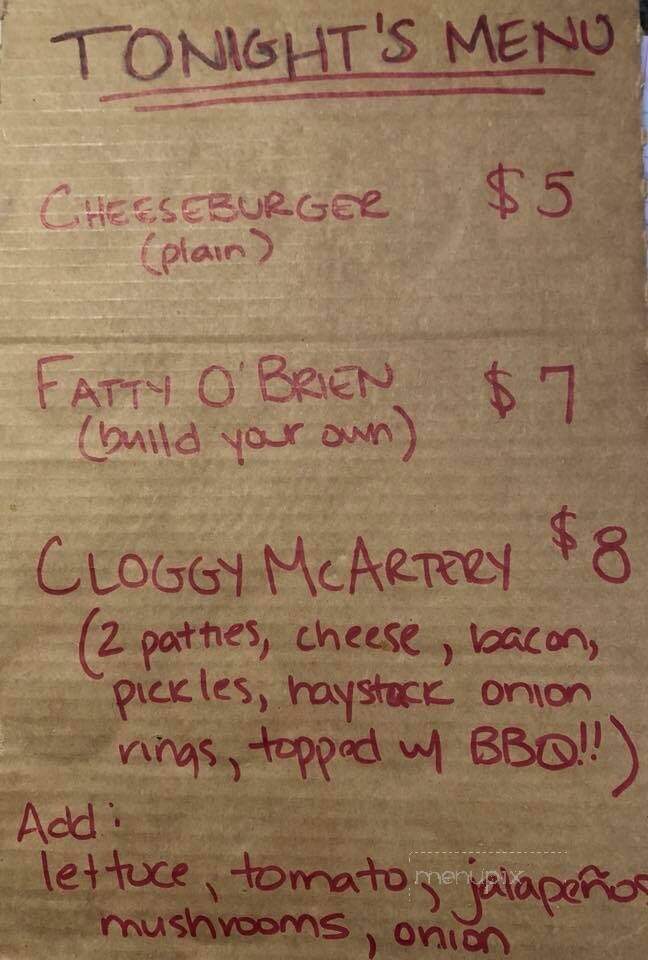 TONIGHT'S MENU
CHEESEBURGER $5
(plain)
FATTY O'BRIEN $7
(build your own)
CLOGGY MCARTERY $8
(2 patties, cheese, bacon,
pickles, haystack onion
rings, topped w/ BBQ!!)
Add:
lettuce, tomato, jalapeños
menupix
mushrooms, onion